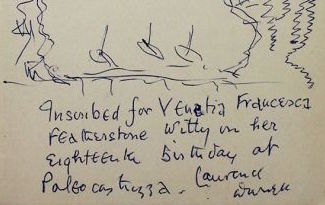 Inscribed for Venetia Francesca
Featherstone Witty on her
Eighteenth Birthday at
Paleocastrizza. Laurence
Durrell